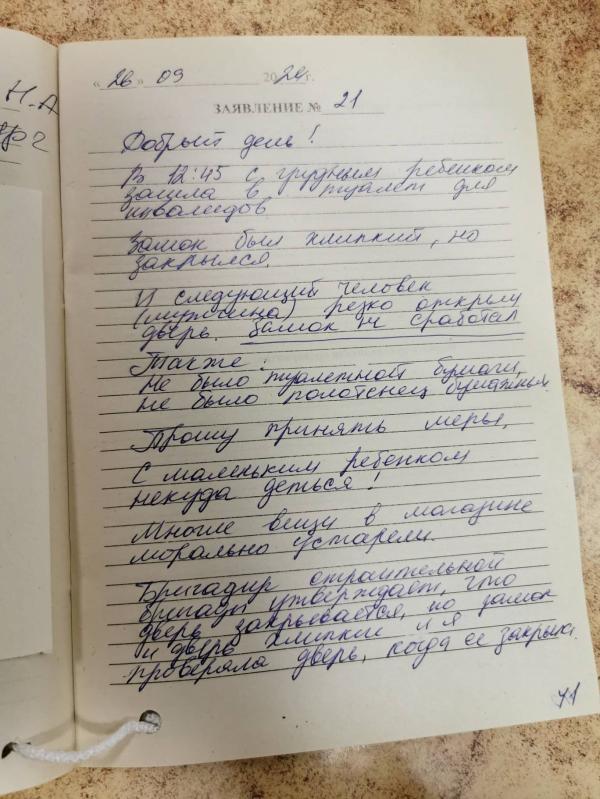 Н.А
№2
« 26 » 09 2024 г.
ЗАЯВЛЕНИЕ № 21
Добрый день!
В 12:45 с грудным ребенком
зашла в туалет для
инвалидов.
Замок был хлипкий, но
закрылся.
И следующий человек
(мужчина) резко открыл
дверь. Замок не сработал
Также:
не было туалетной бумаги,
не было полотенец бумажных.
Прошу принять меры,
С маленьким ребенком
некуда деться!
Многие вещи в магазине
морально устарели.
Бригадир строительной
бригады утверждает, что
дверь закрывается, но замок
и дверь хлипкие и я
проверяла дверь, когда ее закрыла.